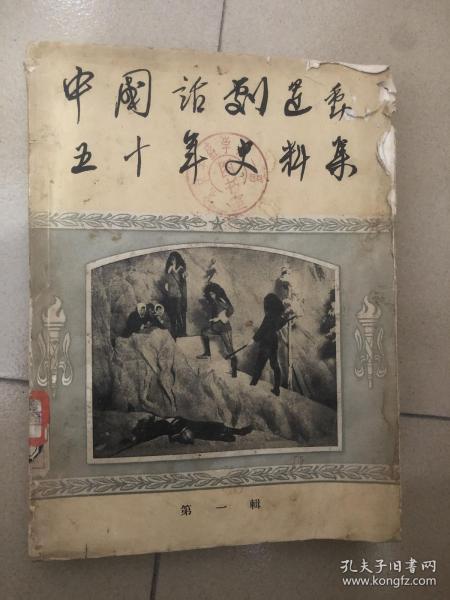 中國話劇运动
五十年史料集
第一輯
孔夫子旧书网
www.kongfz.com